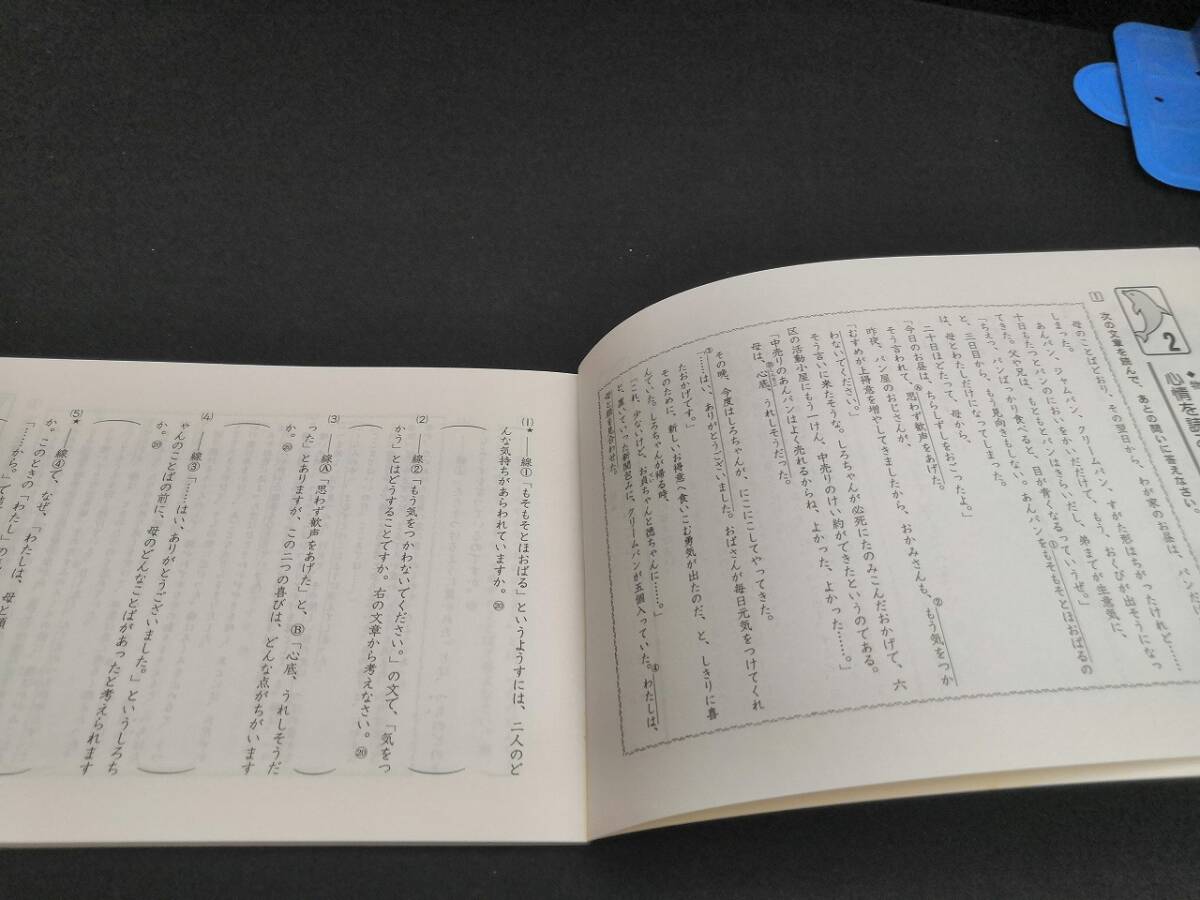 2
心情を読
1
次の文章を読んで、あとの問いに答えなさい。
母のことばどおり、その翌日から、わが家のお昼は、パンだ
しまった。
あんパン、ジャムパン、クリームパン、すがた形はちがったけれど……
あんパンのにおいをかいだだけで、もう、おくびが出そうになっ
十日もたつとパンはきらいだし、弟までが生意気に、
てきた。父や兄は、もともとパンはきらいだし、
「ちぇっ、パンばっかり食べると、目が青くなるっていうぜ。」
と、三日目から、もう見向きもしない。あんパンを①もそもそとほおばるの
は、母とわたしだけになってしまった。
二十日ほどたって、母から、
「今日のお昼は、ちらしずしをおごったよ。」
そう言われて、Ⓐ思わず歓声をあげた。
昨夜、パン屋のおじさんが、
「むすめが上得意を増やしてきましたから、おかみさんも、②もう気をつか
わないでください。」
そう言いに来たそうな。しろちゃんが必死にたのみこんだおかげで、六
区の活動小屋にもう一けん、中売りのけい約ができたというのである。
「中売りのあんパンはよく売れるからね、よかった、よかった……。」
母は、Ⓑ心底、うれしそうだった。
その晩、今度はしろちゃんが、にこにこしてやってきた。
③「……はい、ありがとうございました。おばさんが毎日元気をつけてくれ
たおかげです。」
そのために、新しいお得意へ食いこむ勇気が出たのだ、と、しきりに喜
んでいた。しろちゃんが帰る時、
「これ、少ないけど、お貞ちゃんと徳ちゃんに……。」
と、置いていった新聞包みに、クリームパンが五個入っていた。④わたしは、
母と顔を見合わせた。
(1)★――線①「もそもそとほおばる」というようすには、二人のど
んな気持ちがあらわれていますか。⑳
(2)――線②「もう気をつかわないでください。」の文で、「気をつ
かう」とはどうすることですか。右の文章から考えなさい。⑳
(3)――線Ⓐ「思わず歓声をあげた」と、Ⓑ「心底、うれしそうだ
った」とありますが、この二つの喜びは、どんな点がちがいます
か。⑳
(4)――線③「……はい、ありがとうございました。」というしろち
ゃんのことばの前に、母のどんなことばがあったと考えられます
か。⑳
(5)★――線④で、なぜ、「わたしは、母と顔
か。このときの「わたし」の
「……から。」